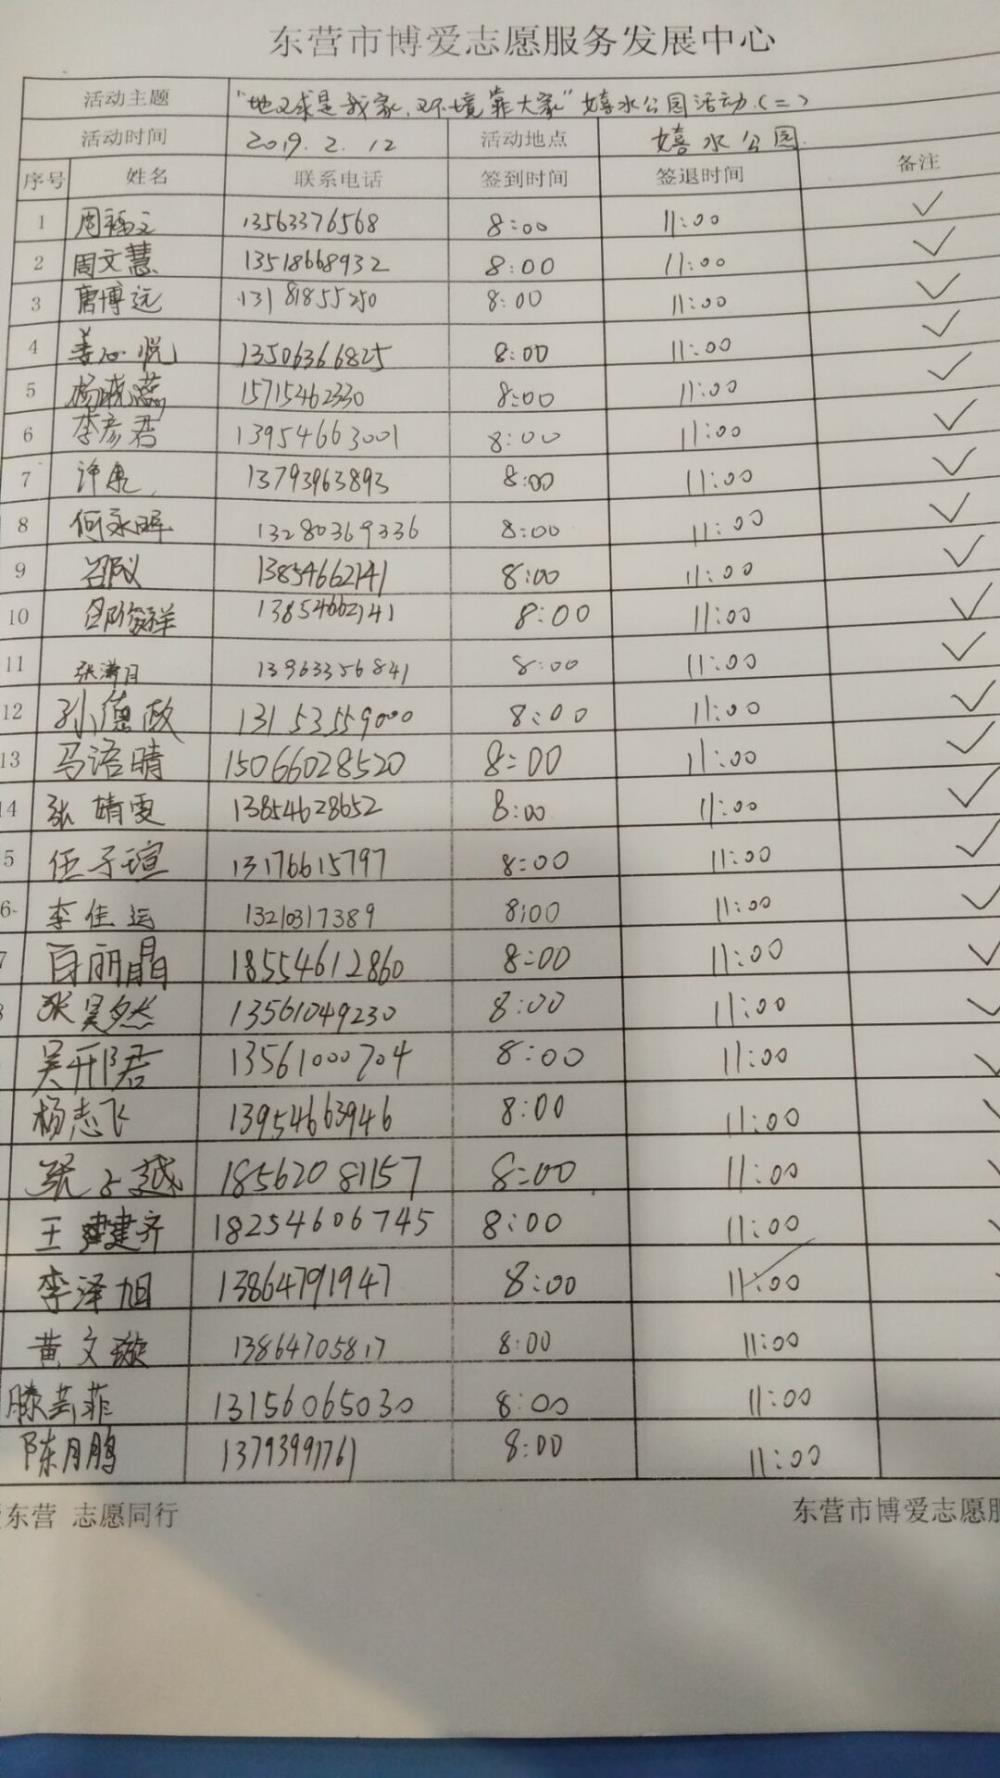 东营市博爱志愿服务发展中心
活动主题 "地球是我家,环境靠大家"嬉水公园活动(二)
活动时间 2019.2.12 活动地点 嬉水公园
序号 姓名 联系电话 签到时间 签退时间 备注
1 周福文 13563376568 8:00 11:00 ✓
2 周文慧 13518668932 8:00 11:00 ✓
3 唐博远 13181855250 8:00 11:00 ✓
4 姜心悦 13506366825 8:00 11:00 ✓
5 杨晓蕊 15715462330 8:00 11:00 ✓
6 李彦君 13954663001 8:00 11:00 ✓
7 许彪 13793963893 8:00 11:00 ✓
8 何永晖 13280369336 8:00 11:00 ✓
9 13854662141 8:00 11:00 ✓
10 邵俊祥 13854662141 8:00 11:00 ✓
11 张满月 13963356841 8:00 11:00 ✓
12 孙德政 13153559000 8:00 11:00 ✓
13 马语晴 15066028520 8:00 11:00 ✓
14 张婧雯 13854628652 8:00 11:00 ✓
5 伍子瑄 13176615797 8:00 11:00 ✓
6 李佳运 13210317389 8:00 11:00 ✓
7 白丽晶 18554612860 8:00 11:00 ✓
8 张昊然 13561049230 8:00 11:00 ✓
吴邢君 13561000704 8:00 11:00
杨志飞 13954663946 8:00 11:00
张子越 18562081157 8:00 11:00
王建齐 18254606745 8:00 11:00
李泽旭 13864791947 8:00 11:00
黄文璇 13864705817 8:00 11:00
滕芸菲 13156065030 8:00 11:00
陈月鹏 13793991761 8:00 11:00
东营 志愿同行 东营市博爱志愿服